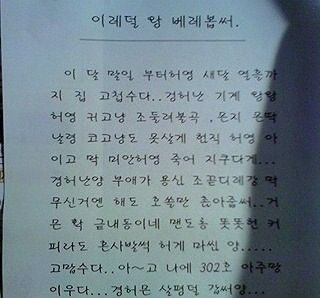 이레덜 왕 베레봅써.
이 달 말일 부터허영 새달 열흘까
지 집 고첨수다..겅허난 기계 왕왕
허영 귀고냥 조들려불곡 ,몬지 몬딱
날령 코고냥도 못살게 헌직 허영 아
이고 막 미안허영 죽어 지쿠다게...
겅허난양 부애가 용심 조끈디레강 막
무신거엔 해도 호쏠만 촘아줍써..거
믄 확 금내동이네 맨도롱 똣똣헌 커
피라도 혼사발씩 허게 마씸 양.....
고맙수다..아~고 나에 302호 아주망
이우다...겅허믄 상평덜 갑써양...